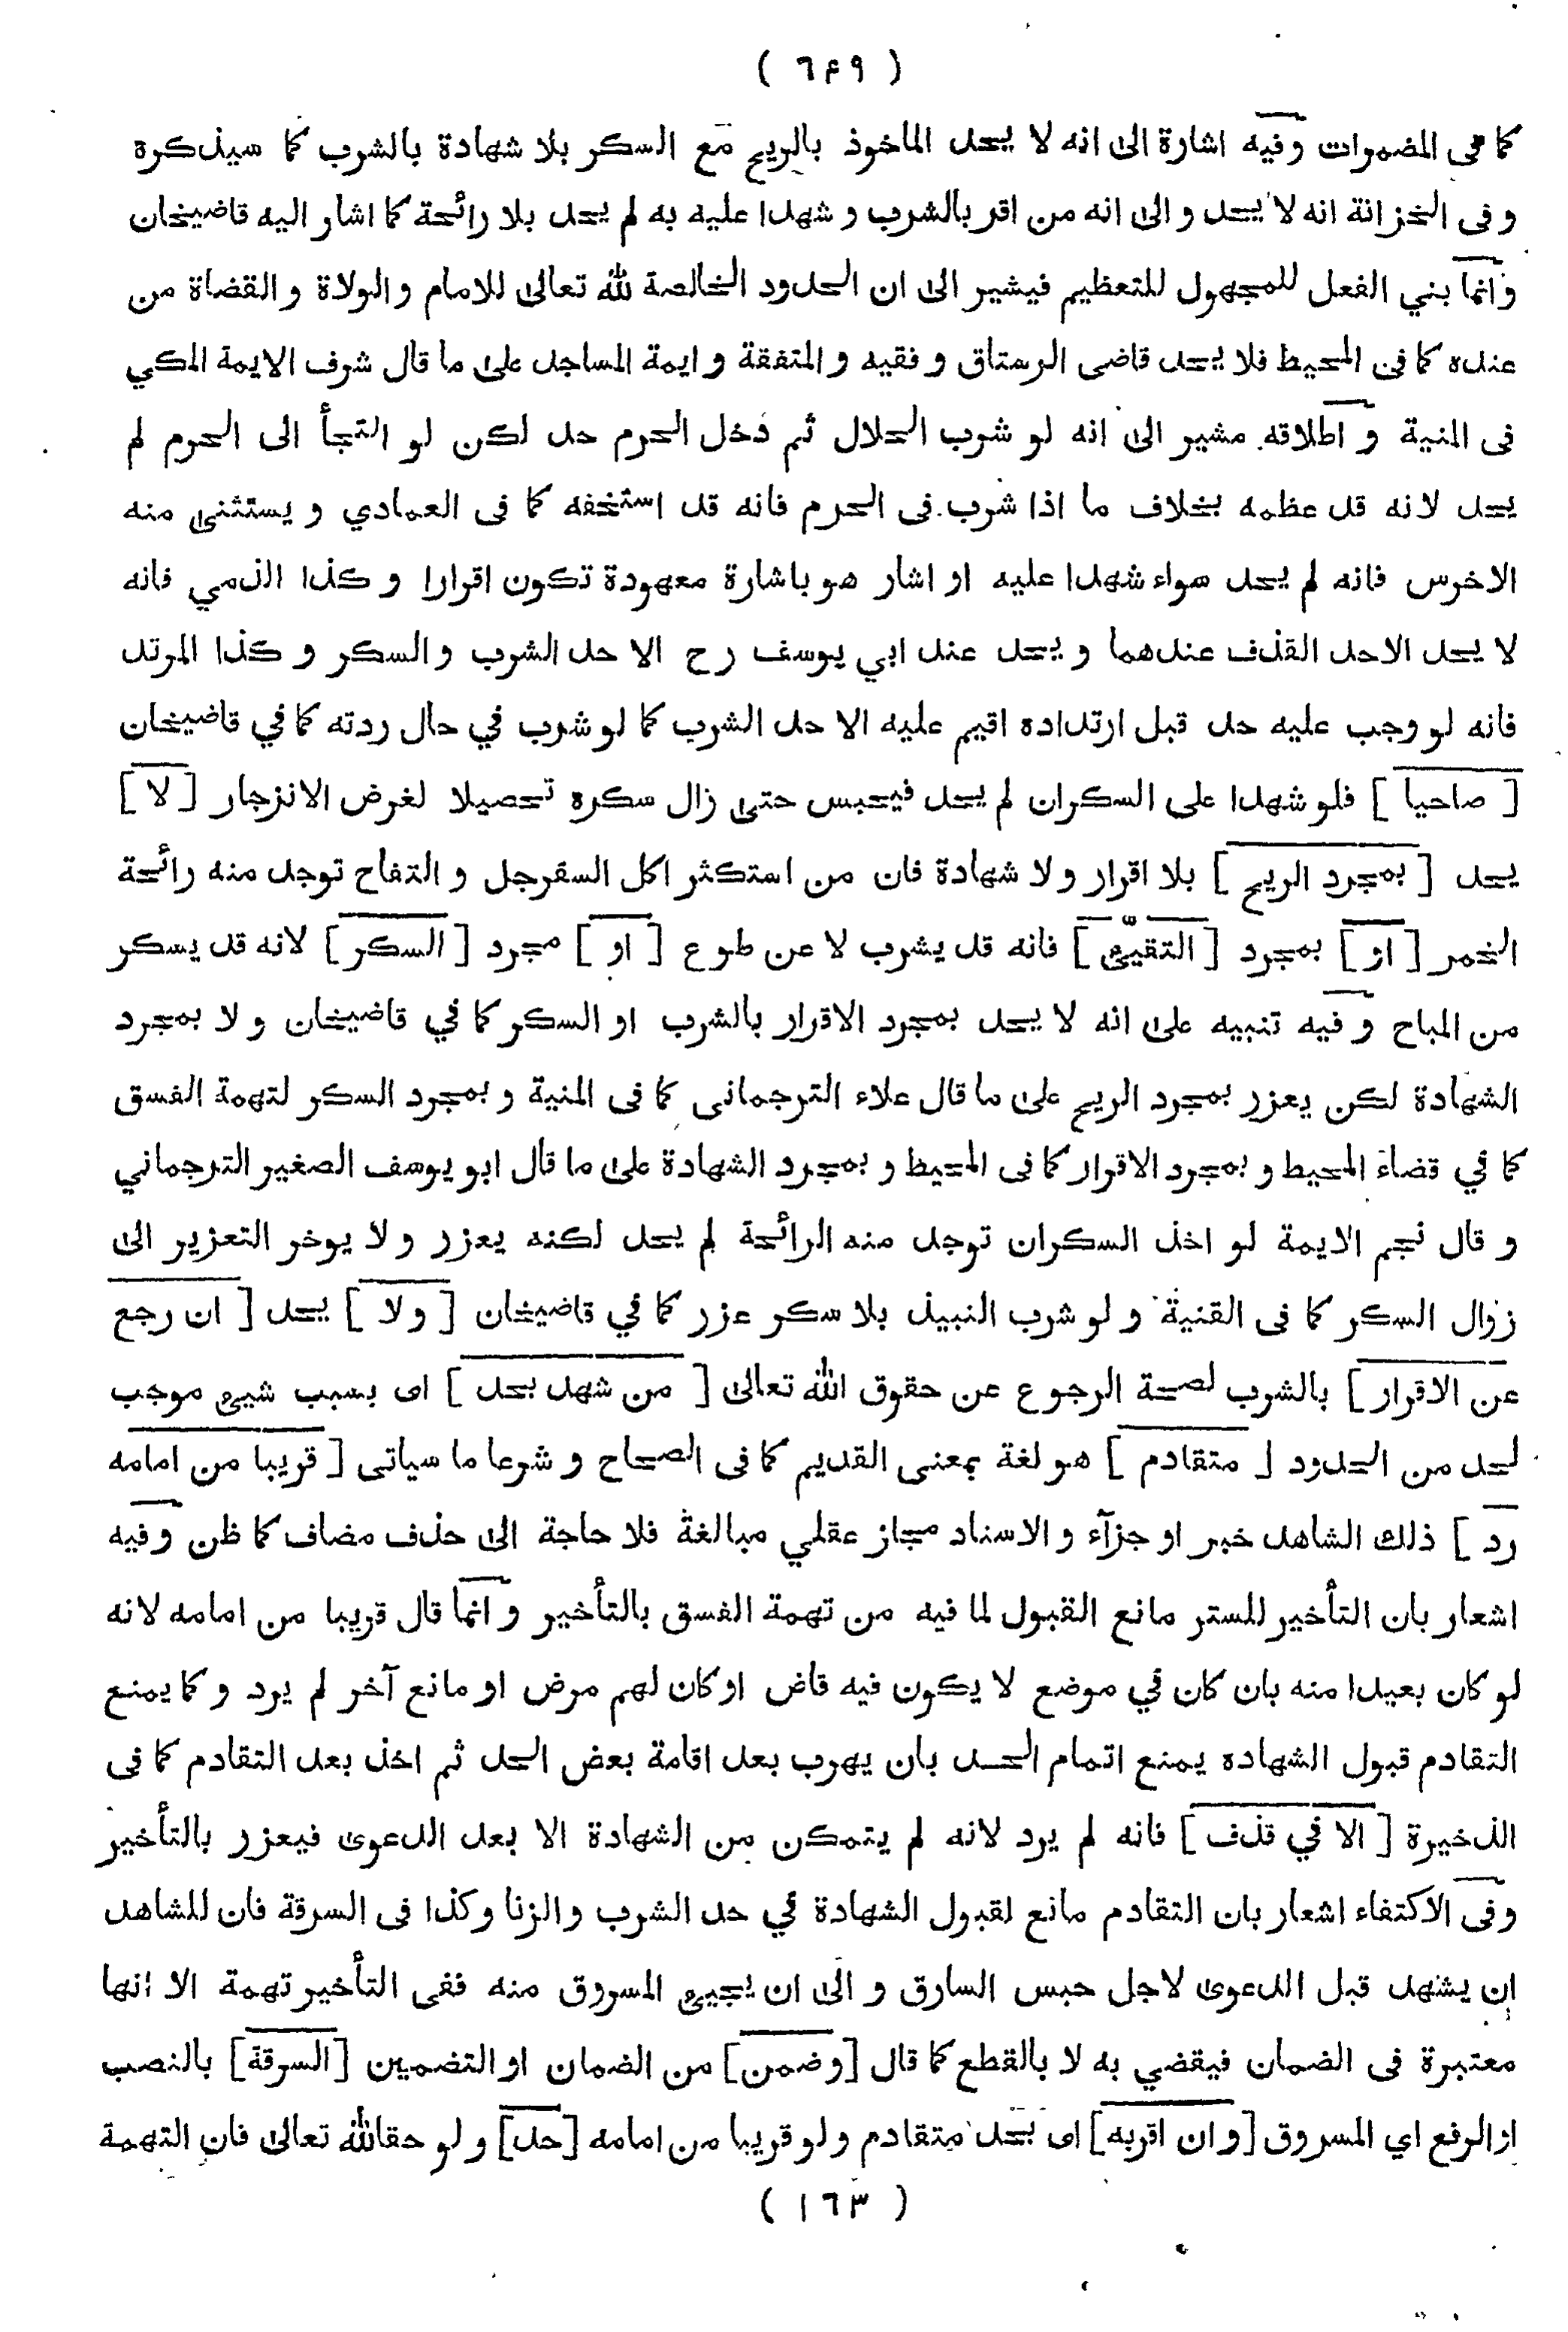 ( ٦۴٩ )
كما في المضمرات وفيه اشارة الى انه لا يحد الماخوذ بالريح مع السكر بلا شهادة بالشرب كما سيذكره
و فى الخزانة انه لا يحد و الى انه من اقر بالشرب و شهدا عليه به لم يحد بلا رائحة كما اشار اليه قاضيخان
و انما بني الفعل للمجهول للتعظيم فيشير الى ان الحدود الخالصة لله تعالى للامام و الولاة و القضاة من
عنده كما فى المحيط فلا يحد قاضى الرستاق و فقيه و المتفقة و ايمة المساجد على ما قال شرف الايمة المكي
فى المنية و اطلاقه مشير الى انه لو شرب الحلال ثم دخل الحرم حد لكن لو التجأ الى الحرم لم
يحد لانه قد عظمه بخلاف ما اذا شرب فى الحرم فانه قد استخفه كما فى العمادي و يستثنى منه
الاخرس فانه لم يحد سواء شهدا عليه او اشار هو باشارة معهودة تكون اقرارا و كذا الذمي فانه
لا يحد الاحد القذف عندهما و يحد عند ابي يوسف رح الا حد الشرب و السكر و كذا المرتد
فانه لو وجب عليه حد قبل ارتداده اقيم عليه الا حد الشرب كما لو شرب في حال ردته كما في قاضيخان
[ صاحيا ] فلو شهدا على السكران لم يحد فيحبس حتى زال سكره تحصيلا لغرض الانزجار [ لا ]
يحد [ بمجرد الريح ] بلا اقرار و لا شهادة فان من استكثر اكل السفرجل و التفاح توجد منه رائحة
الخمر [ او ] بمجرد [ التقيّئ ] فانه قد يشرب لا عن طوع [ او ] مجرد [ السكر ] لانه قد يسكر
من المباح و فيه تنبيه على انه لا يحد بمجرد الاقرار بالشرب او السكر كما في قاضيخان و لا بمجرد
الشهادة لكن يعزر بمجرد الريح على ما قال علاء الترجمانى كما فى المنية و بمجرد السكر لتهمة الفسق
كما في قضاء المحيط و بمجرد الاقرار كما فى المحيط و بمجرد الشهادة على ما قال ابو يوسف الصغير الترجماني
و قال نجم الايمة لو اخذ السكران توجد منه الرائحة لم يحد لكنه يعزر و لا يوخر التعزير الى
زوال السكر كما فى القنية و لو شرب النبيذ بلا سكر عزر كما في قاضيخان [ و لا ] يحد [ ان رجع
عن الاقرار ] بالشرب لصحة الرجوع عن حقوق الله تعالى [ من شهد بحد ] اى بسبب شيئ موجب
لحد من الحدود [ متقادم ] هو لغة بمعنى القديم كما فى الصحاح و شرعا ما سياتى [ قريبا من امامه
رد ] ذلك الشاهد خبر او جزآء و الاسناد مجاز عقلي مبالغة فلا حاجة الى حذف مضاف كما ظن و فيه
اشعار بان التأخير للستر مانع القبول لما فيه من تهمة الفسق بالتأخير و انما قال قريبا من امامه لانه
لو كان بعيدا منه بان كان في موضع لا يكون فيه قاض او كان لهم مرض او مانع آخر لم يرد و كما يمنع
التقادم قبول الشهاده يمنع اتمام الحد بان يهرب بعد اقامة بعض الحد ثم اخذ بعد التقادم كما فى
الذخيرة [ الا في قذف ] فانه لم يرد لانه لم يتمكن من الشهادة الا بعد الدعوى فيعزر بالتأخير
وفى الاكتفاء اشعار بان التقادم مانع لقبول الشهادة في حد الشرب و الزنا و كذا فى السرقة فان للشاهد
ان يشهد قبل الدعوى لاجل حبس السارق و الى ان يجيئ المسروق منه ففى التأخير تهمة الا انها
معتبرة فى الضمان فيقضي به لا بالقطع كما قال [ و ضمن ] من الضمان او التضمين [ السرقة ] بالنصب
او الرفع اي المسروق [ و ان اقر به ] اى بحد متقادم و لو قريبا من امامه [ حد ] و لو حقالله تعالى فان التهمة
( ١٦٣ )